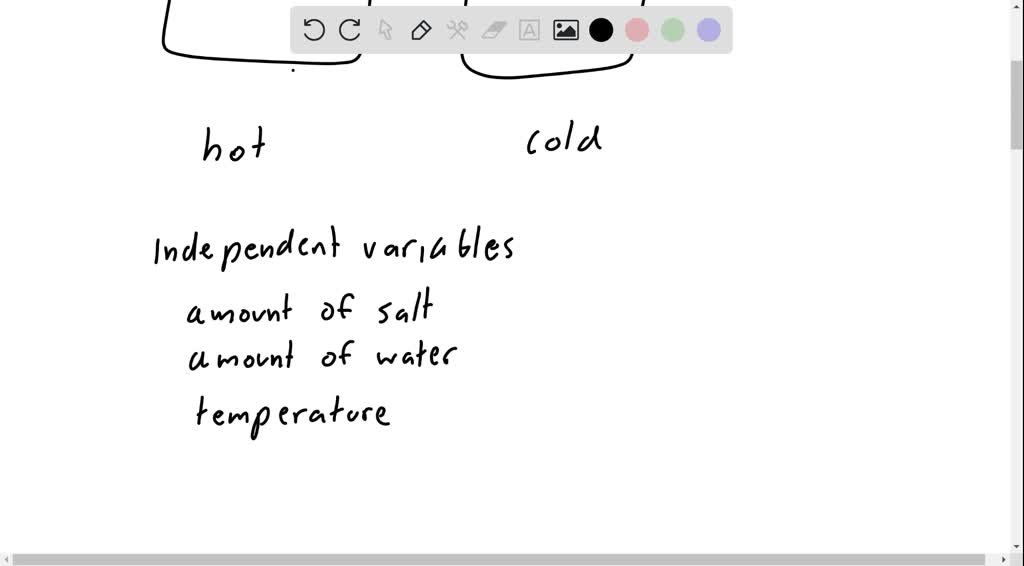 hot cold
Independent variables
amount of salt
amount of water
temperature